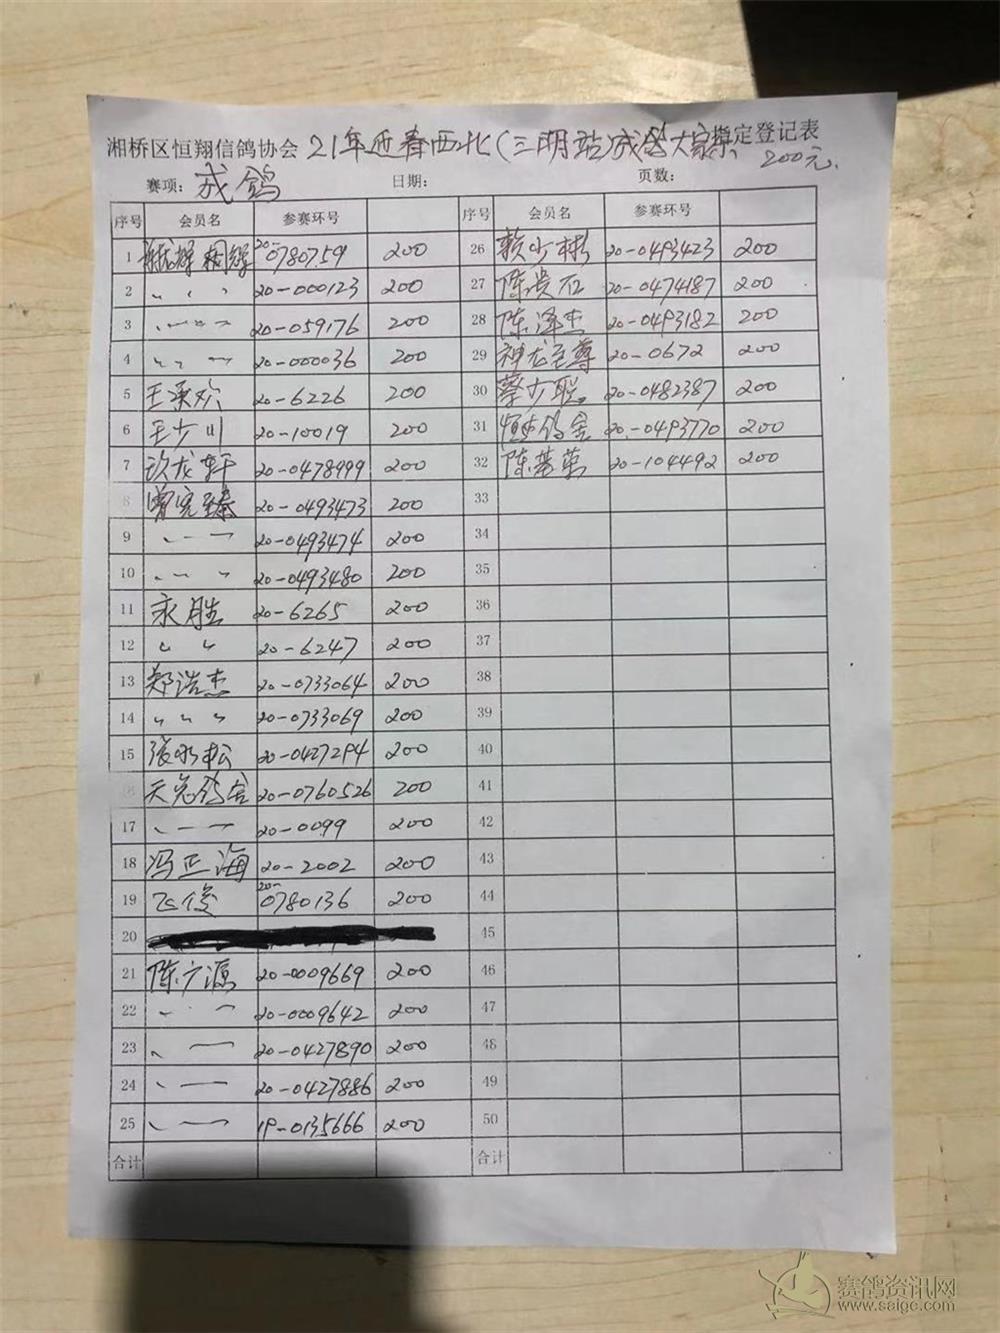 湘桥区恒翔信鸽协会 21年迎春西北(三明站)成鸽大家乐指定登记表
200元
赛项: 成鸽 日期: 页数:
序号 会员名 参赛环号 序号 会员名 参赛环号
1 20-0780759 200 26 赖少彬 20-0493423 200
2 〃 〃 〃 20-000123 200 27 陈贵石 20-0474187 200
3 〃 〃 〃 20-059176 200 28 陈泽杰 20-0493182 200
4 〃 〃 〃 20-000036 200 29 神龙至尊 20-0672 200
5 王承欢 20-6226 200 30 蔡少聪 20-0482387 200
6 王少川 20-10019 200 31 鸽舍 20-0493770 200
7 玖龙轩 20-0478999 200 32 陈 20-104492 200
8 曾宪臻 20-0493473 200 33
9 〃 — 〃 20-0493474 200 34
10 〃 — 〃 20-0493480 200 35
11 永胜 20-6265 200 36
12 〃 〃 20-6247 200 37
13 郑浩杰 20-0733064 200 38
14 〃 〃 〃 20-0733069 200 39
15 张永松 20-0427294 200 40
16 天兔鸽舍 20-0760526 200 41
17 〃 — 〃 20-0099 200 42
18 冯正海 20-2002 200 43
19 飞俊 20-0780136 200 44
20 45
21 陈广源 20-0009669 200 46
22 〃 — 〃 20-0009642 200 47
23 〃 — 〃 20-0427890 200 48
24 〃 — 〃 20-0427886 200 49
25 〃 — 〃 19-0135666 200 50
合计 合计
赛鸽资讯网
www.saigc.com